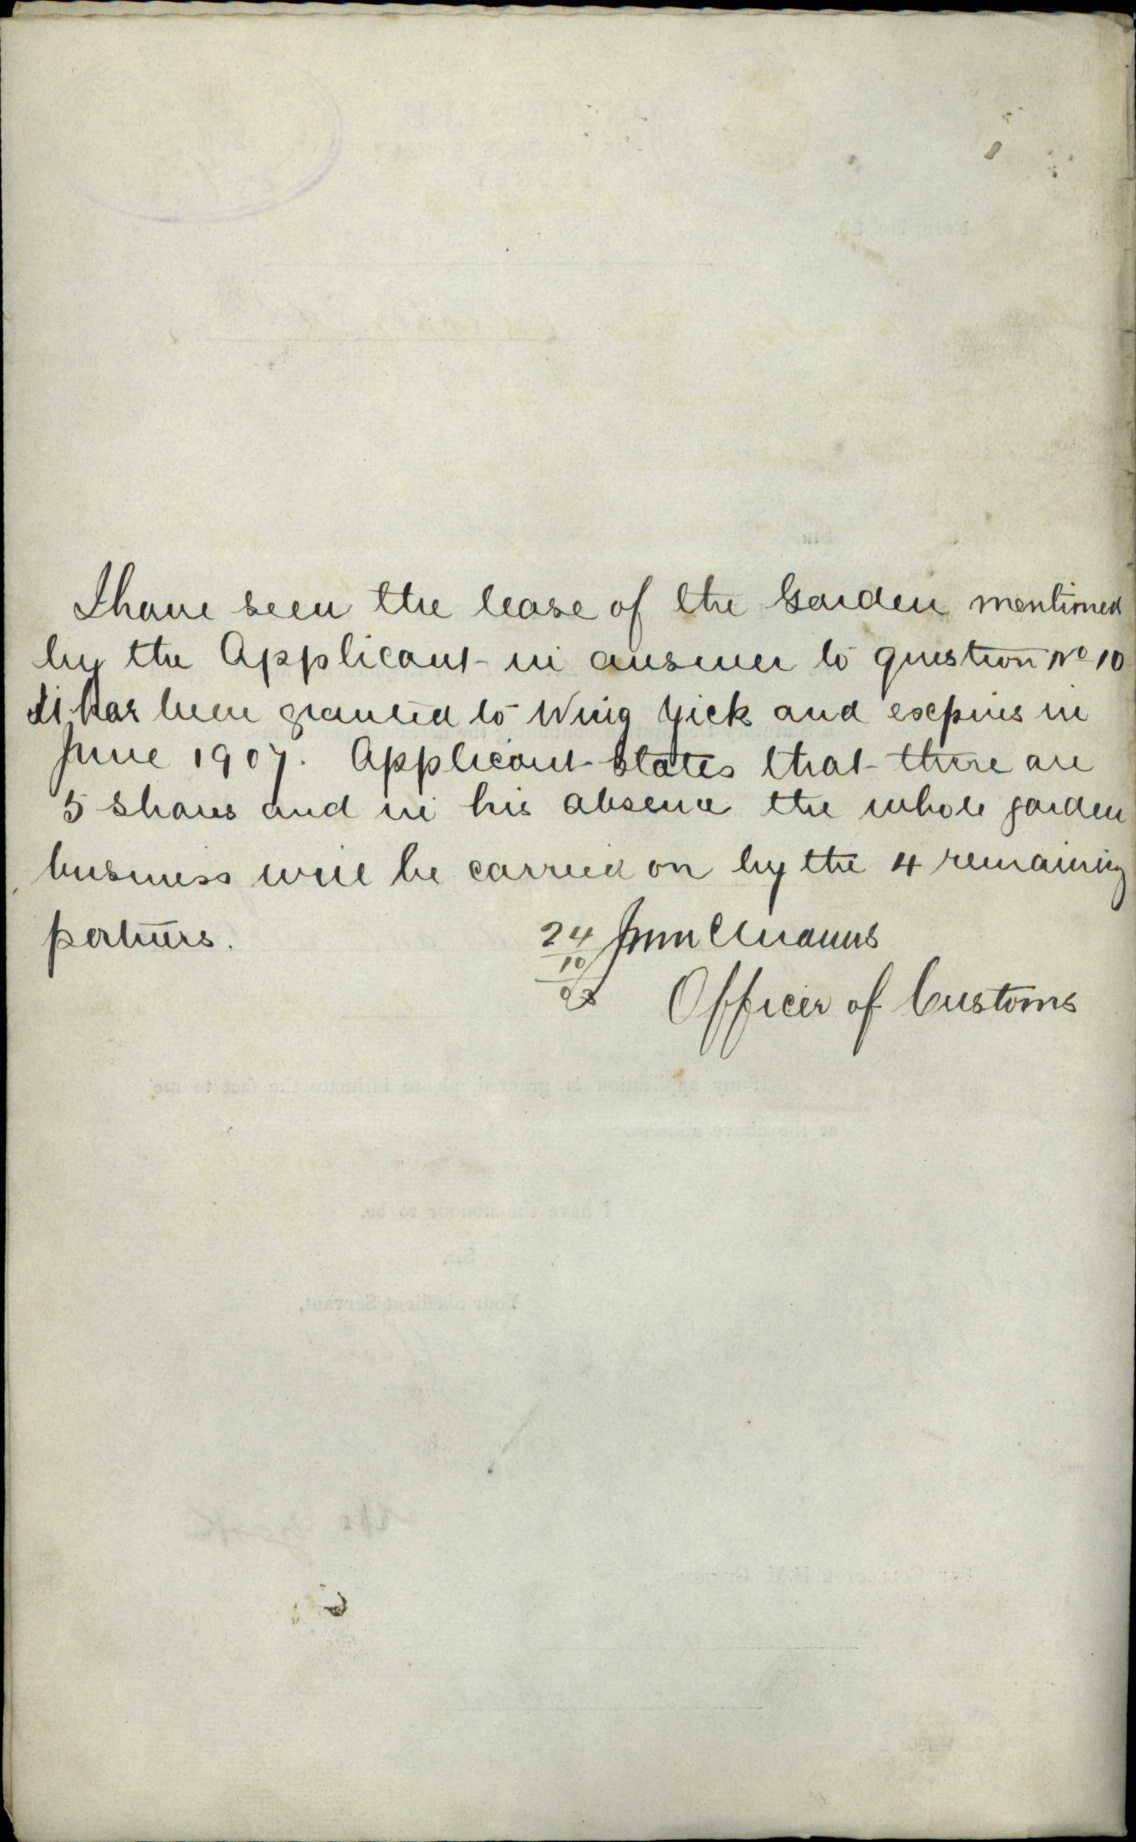 I have seen the lease of the Garden mentioned
by the Applicant in answer to question No 10
It has been granted to Wing Yick and expires in
June 1907. Applicant States that there are
5 Shares and in his absence the whole garden
business will be carried on by the 4 remaining
partners.
24
10
02
Officer of Customs
I have the honour to be,
Sir,
Your obedient Servant,